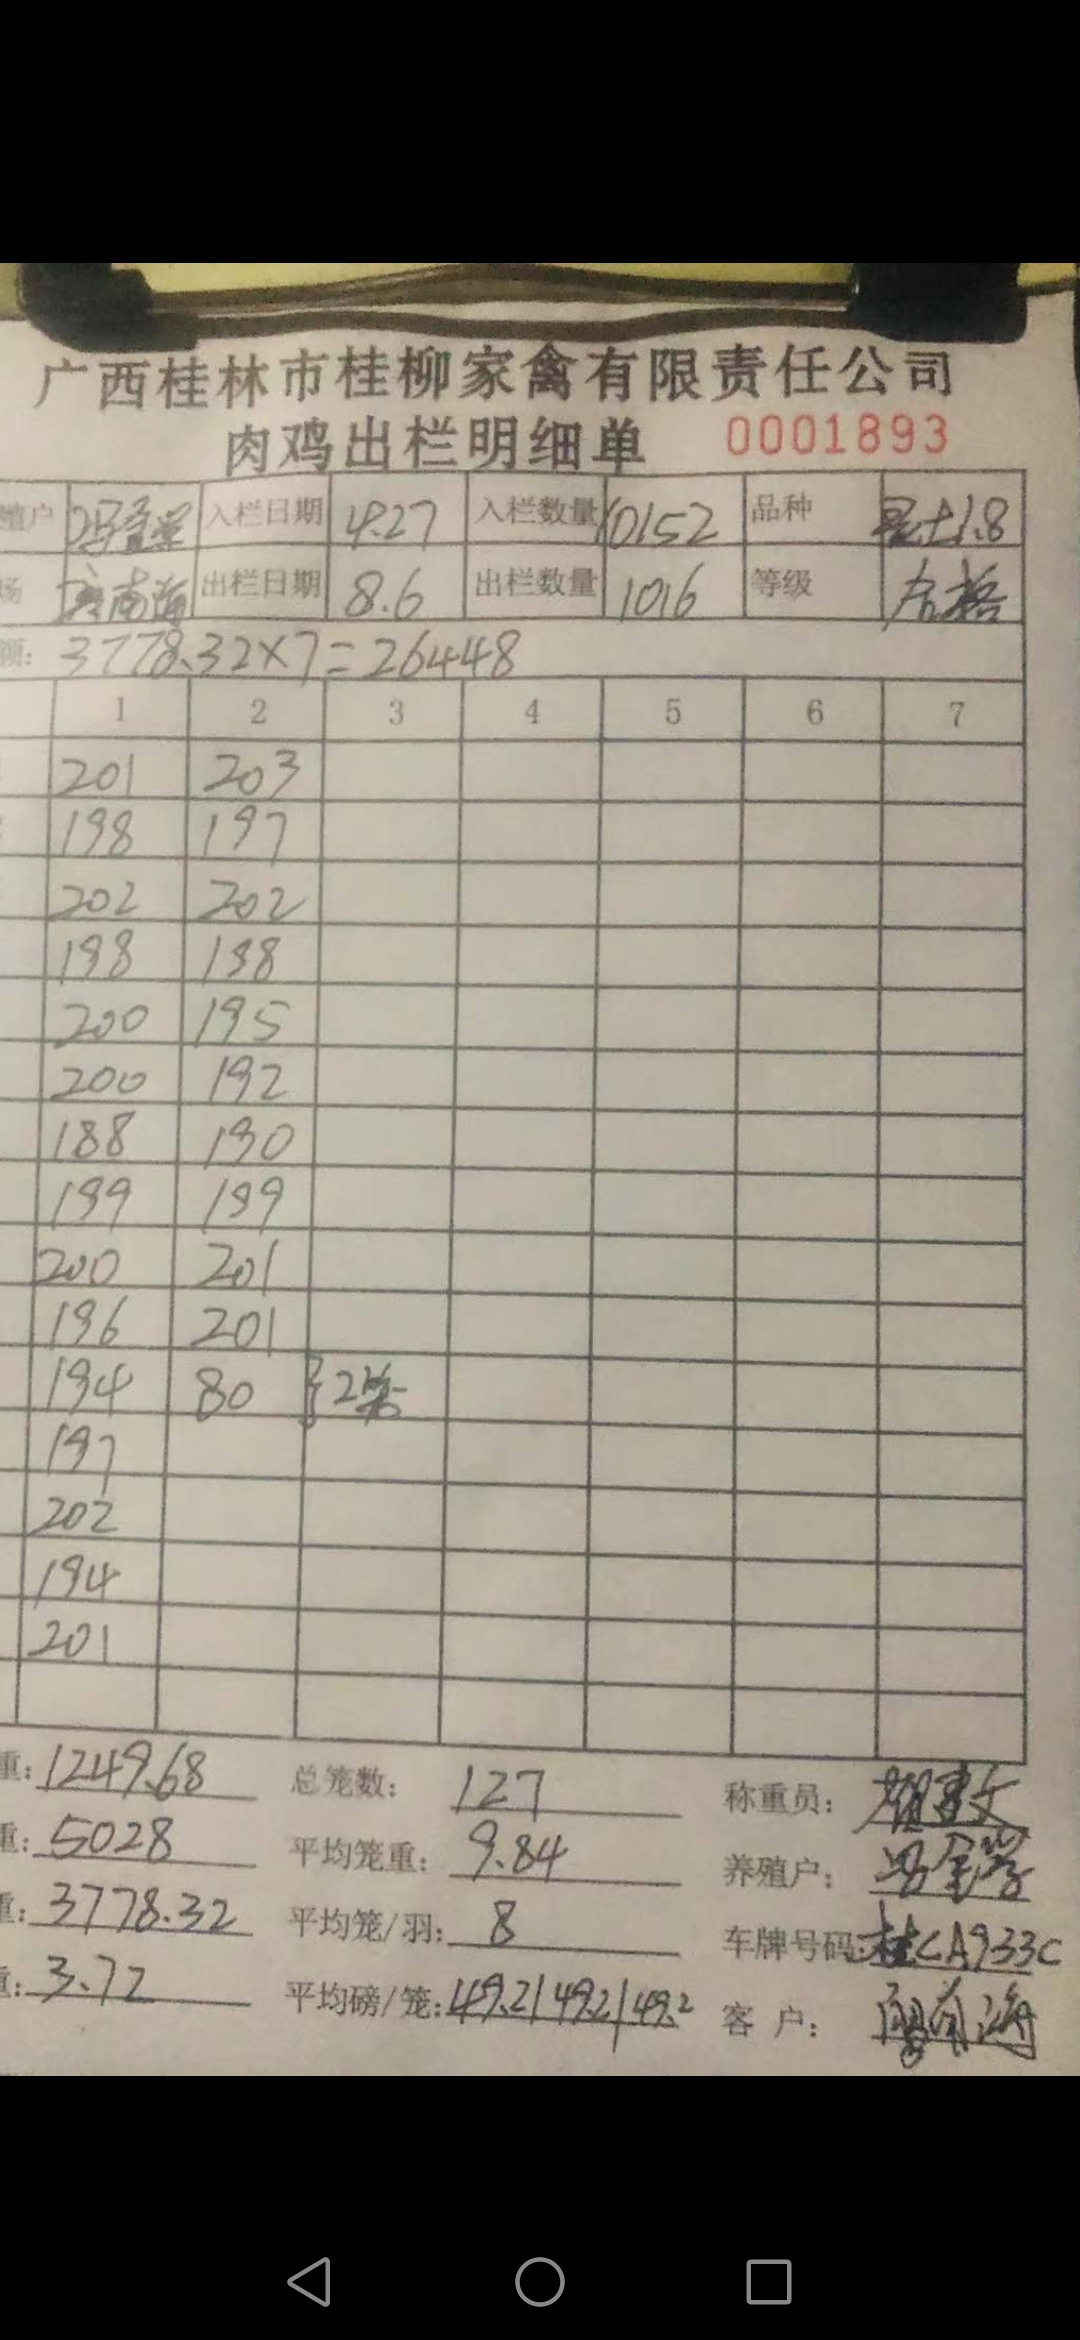 广西桂林市桂柳家禽有限责任公司
肉鸡出栏明细单 0001893
殖户 入栏日期 4.27 入栏数量 10152 品种 土1.8
场 南海 出栏日期 8.6 出栏数量 1016 等级 合格
额: 3778.32×7=26448
1 2 3 4 5 6 7
201 203
198 197
202 202
198 198
200 195
200 192
188 190
199 199
200 201
196 201
194 80 }2笼
197
202
194
201
重: 1249.68 总笼数: 127 称重员:
重: 5028 平均笼重: 9.84 养殖户:
重: 3778.32 平均笼/羽: 8 车牌号码: 桂CA933C
重: 3.72 平均磅/笼: 49.2/49.2/49.2 客 户: